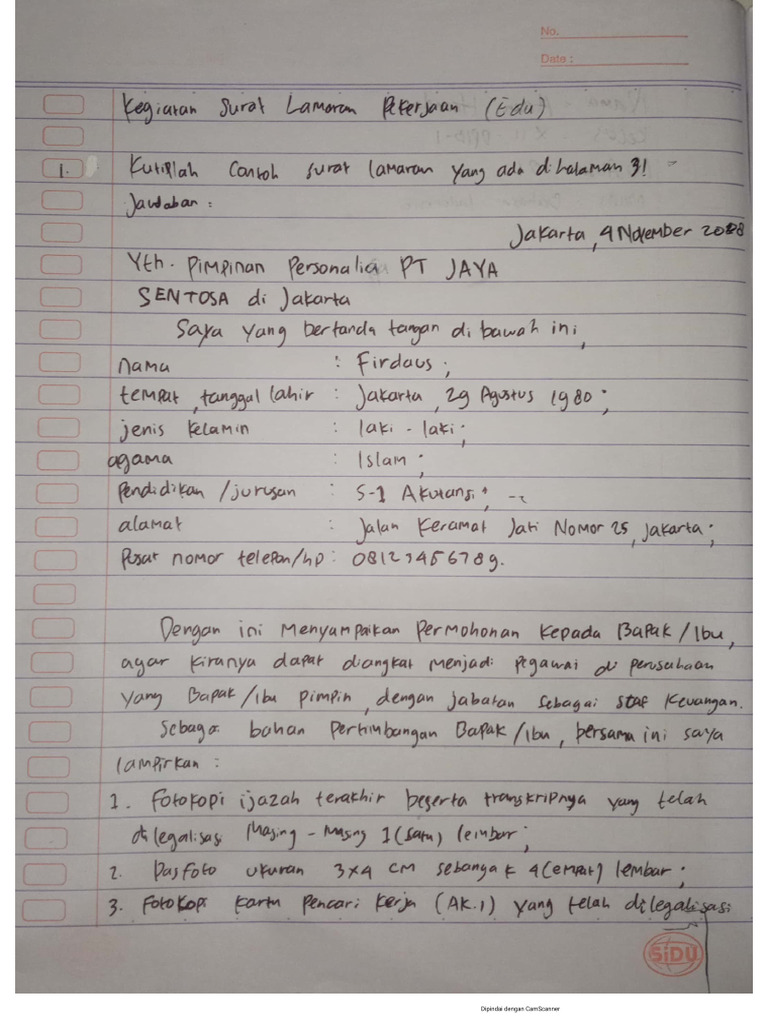 No.
Date :
Kegiatan Surat Lamaran Pekerjaan (Edu)
1. Kutiplah Contoh surat lamaran yang ada dihalaman 3!
Jawaban :
Jakarta, 4 November 2008
Yth. Pimpinan Personalia PT JAYA
SENTOSA di Jakarta
Saya yang bertanda tangan di bawah ini,
nama : Firdaus ;
tempat, tanggal lahir : Jakarta, 29 Agustus 1980 ;
jenis kelamin : laki - laki ;
agama : Islam ;
Pendidikan / jurusan : S-1 Akutansi ;
alamat : Jalan Keramat Jati Nomor 25, Jakarta ;
Pusat nomor telepon/hp : 08123456789.
Dengan ini menyampaikan Permohonan kepada Bapak / Ibu,
agar kiranya dapat diangkat menjadi pegawai di perusahaan
yang Bapak / ibu pimpin, dengan jabatan sebagai staf keuangan.
Sebagai bahan Pertimbangan Bapak / Ibu, bersama ini saya
lampirkan :
1. Fotokopi ijazah terakhir beserta transkripnya yang telah
dilegalisasi Masing - Masing 1 (satu) lembar ;
2. Pasfoto ukuran 3x4 CM sebanyak 4 (empat) lembar ;
3. Fotokopi kartu Pencari Kerja (AK.1) yang telah dilegalisasi
SiDU
Dipindai dengan CamScanner